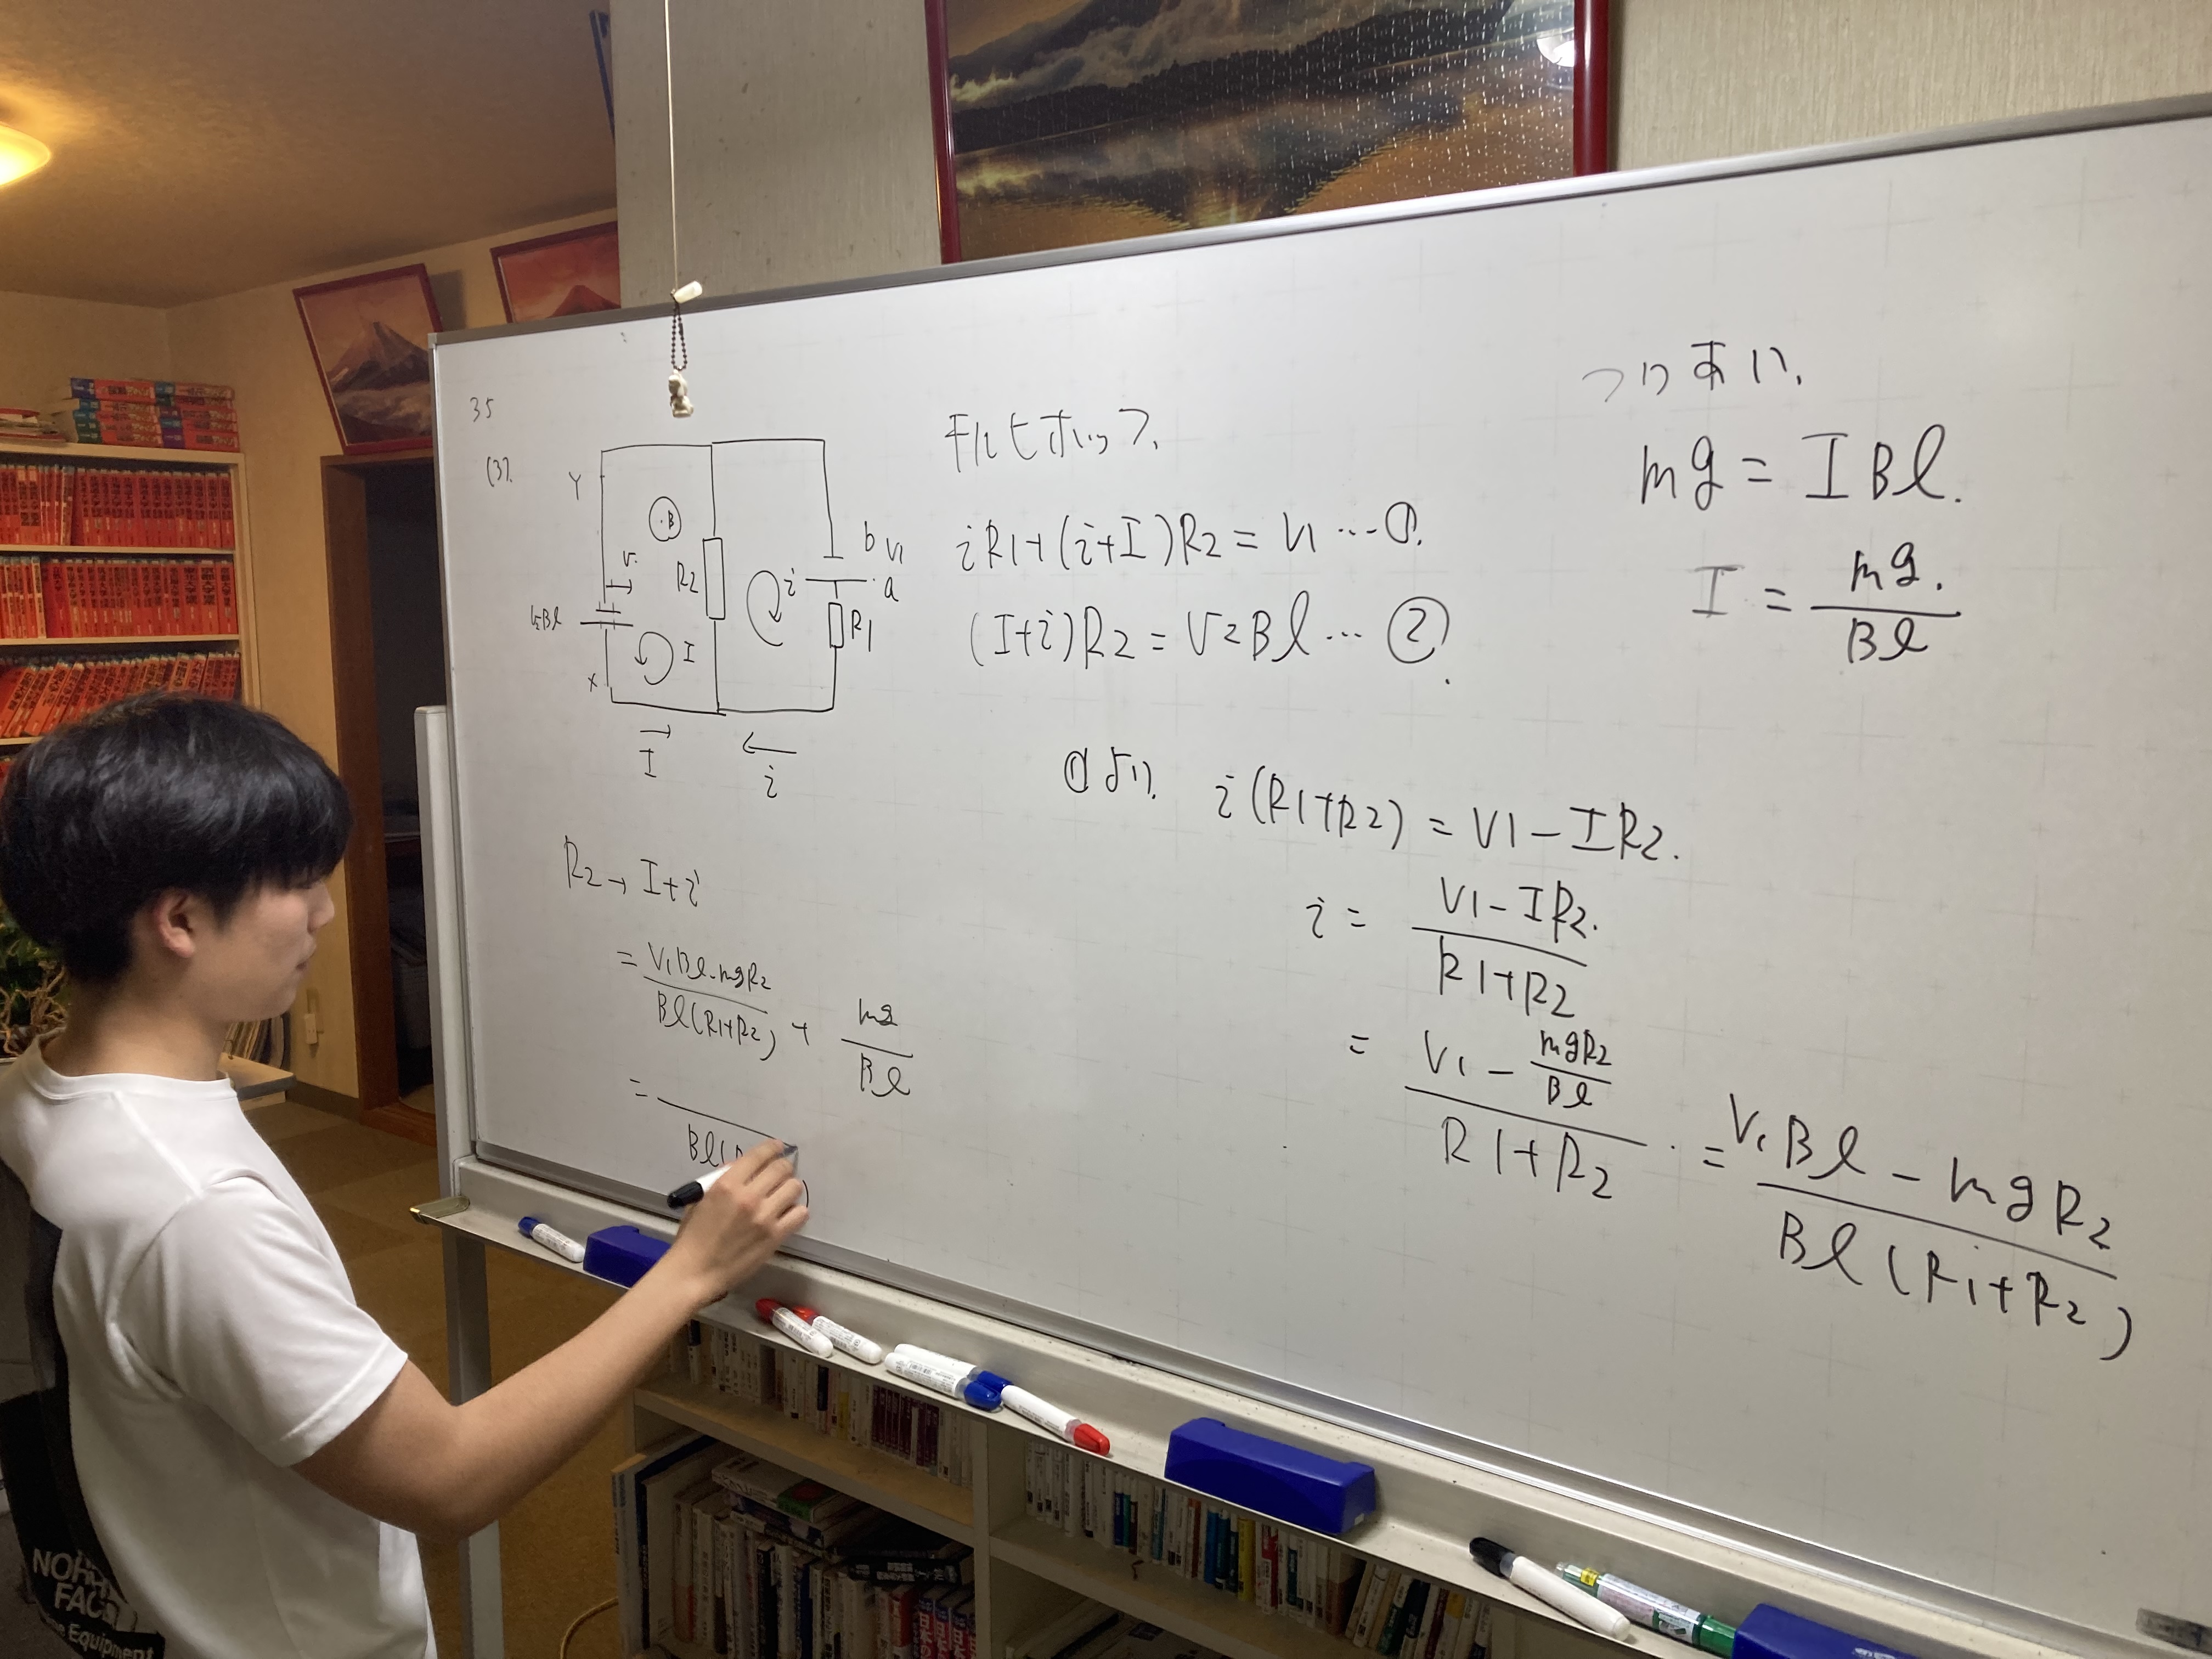 35
(3).
Y
B
v
R2
b V1
i
a
R1
v2Bl
I
X
I
i
キルヒホッフ.
iR1+(i+I)R2 = V1 … ①.
(I+i)R2 = v2Bl … ②.
つりあい.
mg = IBl.
I = mg. / Bl
①より.
i(R1+R2) = V1-IR2.
i = V1-IR2. / R1+R2
= V1 - mgR2/Bl / R1+R2 . = V1Bl - mgR2 / Bl(R1+R2)
R2 → I+i
= V1Bl-mgR2 / Bl(R1+R2) + mg / Bl
= / Bl(
NORTH
FACE
Equipment